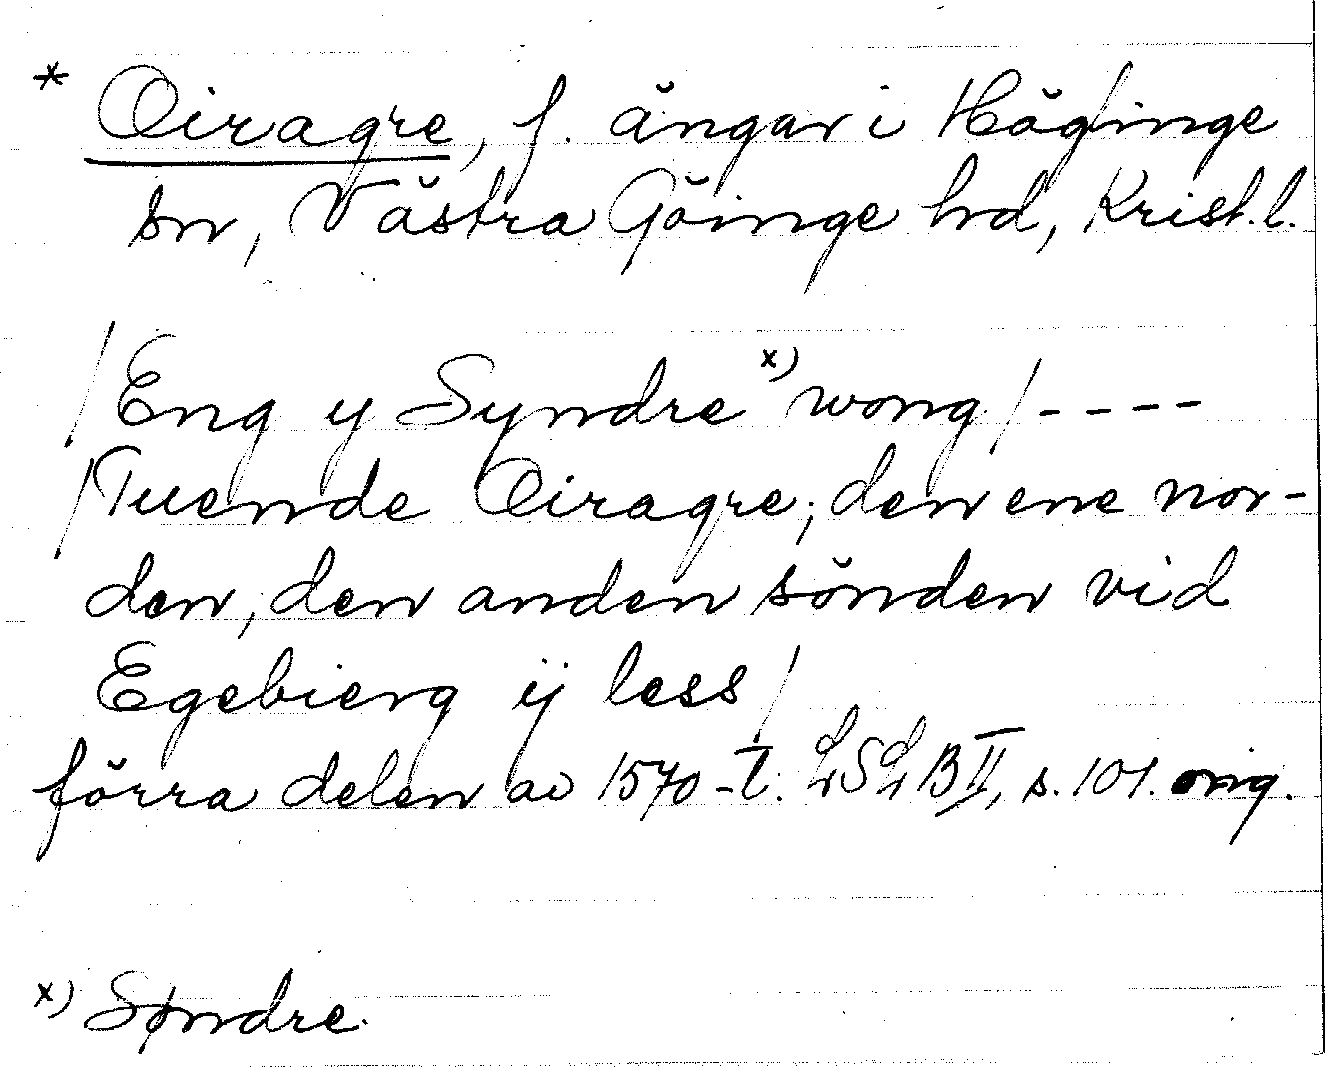 * Oiragre, f. ängar i Höglinge
sn, Västra Göinge hd, Krist. l.
/Eng y Syndre x) wong/----
/Tuende Oiragre; den ene nor-
den, den anden sönden vid
Egebierg ij less/
förra delen av 1570-t. LSLB II, s. 101. orig.
x) Søndre.